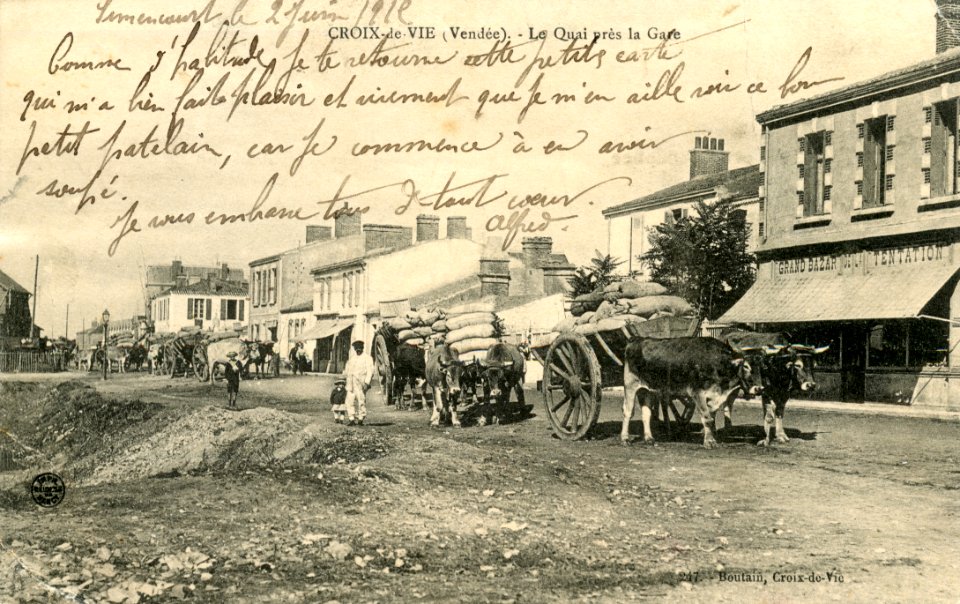 Simencourt le 2 Juin 1912
CROIX-de-VIE (Vendée). - Le Quai près la Gare
Comme d'habitude je te retourne cette petite carte
qui m'a bien fait plaisir et vivement que je m'en aille voir ce bon
petit patelain, car je commence à en avoir
soupé.
Je vous embrasse tous d'tout cœur
Alfred.
GRAND BAZAR TENTATION
247. - Boutain, Croix-de-Vie